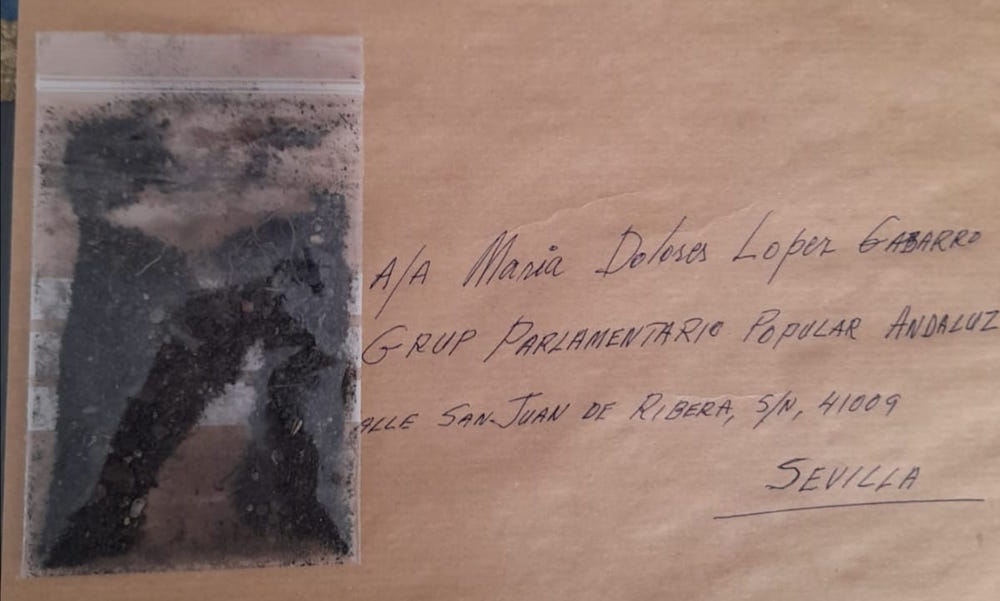 A/A Maria Dolores Lopez GABARRO
GRUP PARLAMENTARIO POPULAR ANDALUZ
ALLE SAN JUAN DE RIBERA, S/N, 41009
SEVILLA